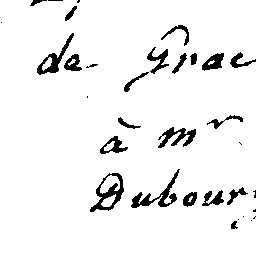 de Grac
à mr
Dubourg